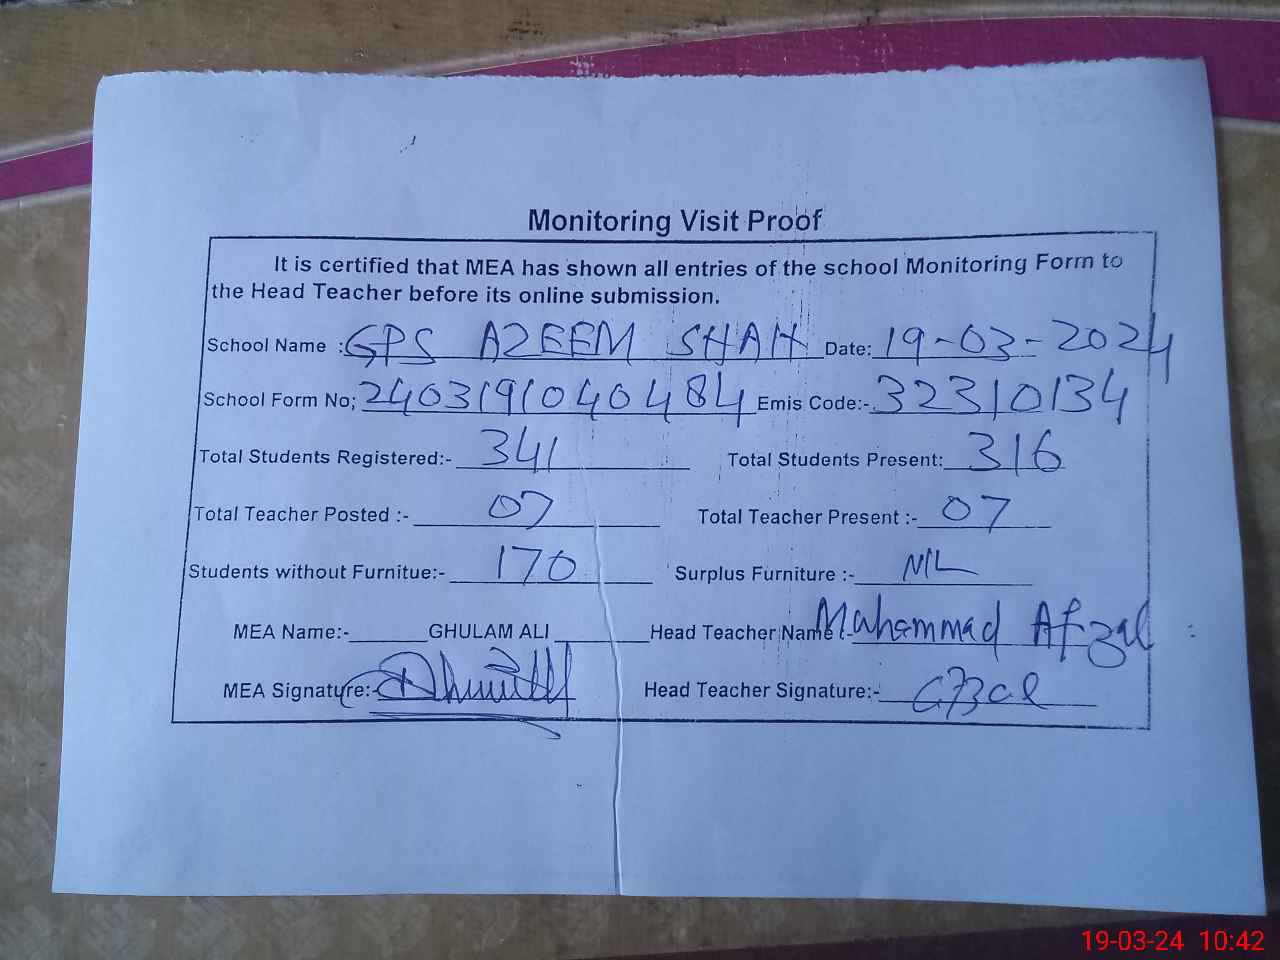 Monitoring Visit Proof
It is certified that MEA has shown all entries of the school Monitoring Form to
the Head Teacher before its online submission.
School Name : GPS AZEEM SHAH Date: 19-03-2024
School Form No; 2403191040484 Emis Code:- 32310134
Total Students Registered:- 341 Total Students Present: 316
Total Teacher Posted :- 07 Total Teacher Present :- 07
Students without Furnitue:- 170 Surplus Furniture :- NIL
MEA Name:- GHULAM ALI Head Teacher Name :- Muhammad Afzal
MEA Signature:- Head Teacher Signature:- afzal
19-03-24 10:42